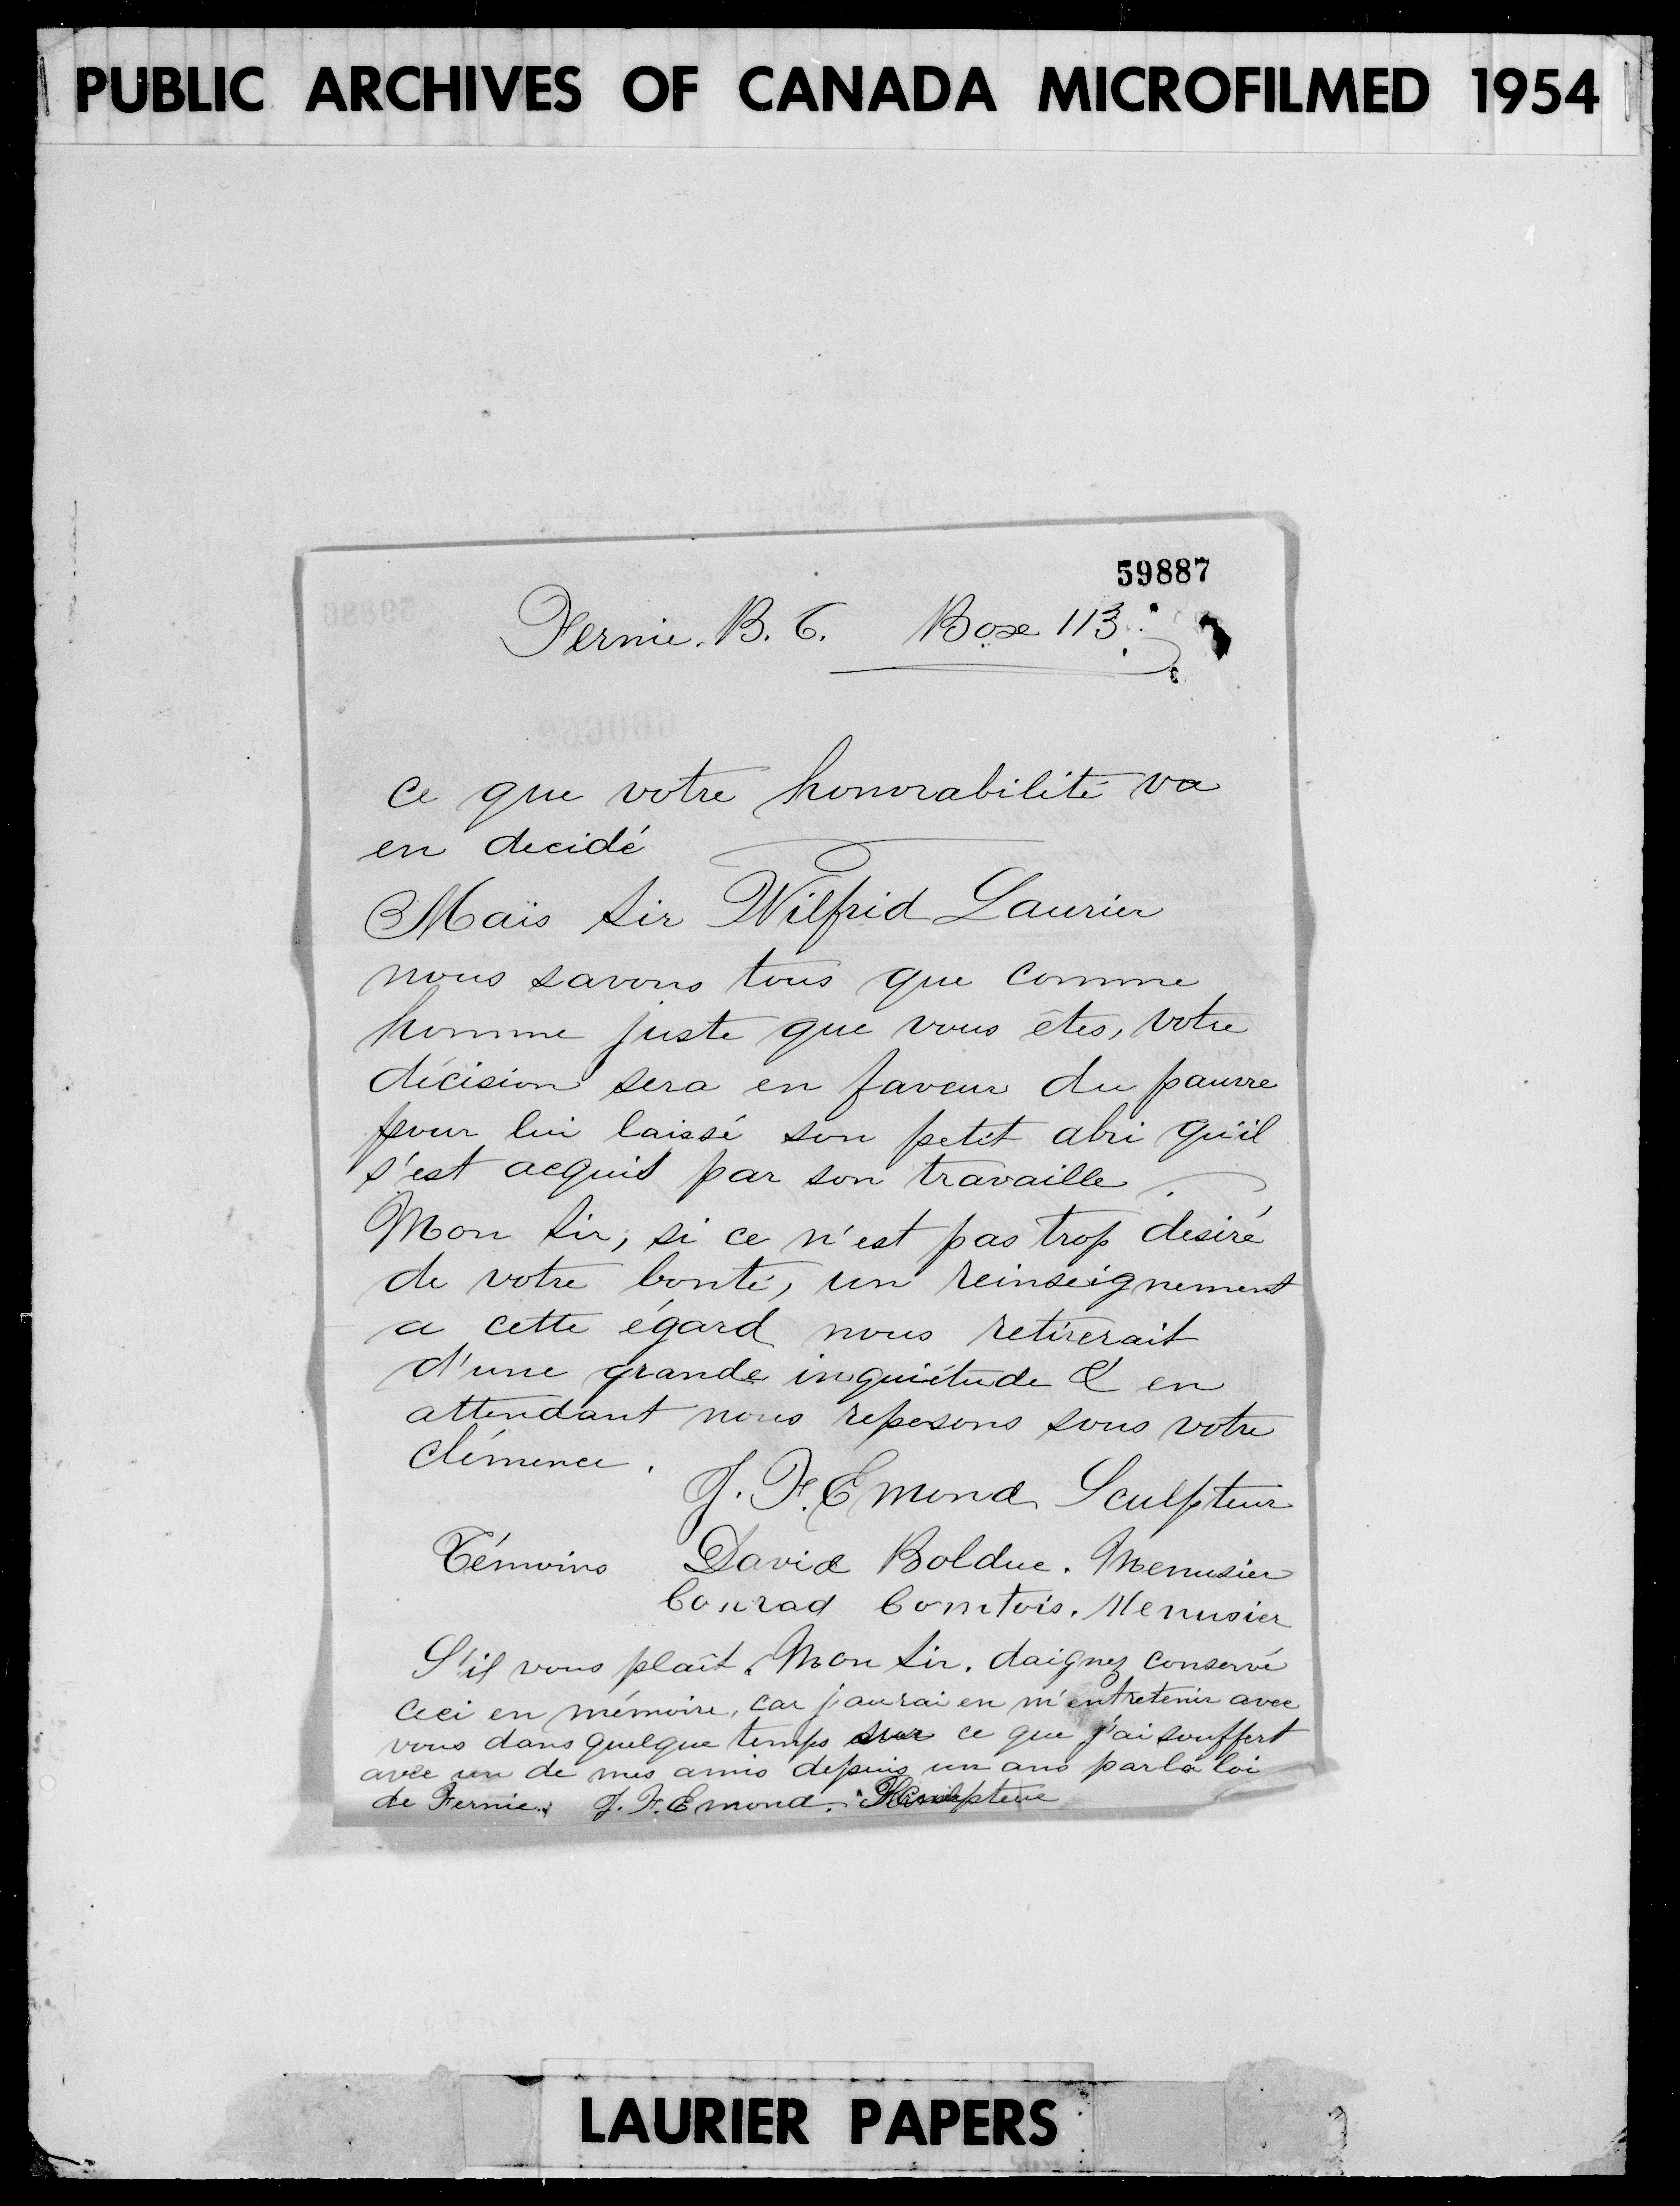 PUBLIC ARCHIVES OF CANADA MICROFILMED 1954
59887
Fernie. B. C. Box 113
ce que votre honorabilité va
en decidé
Mais Sir Wilfrid Laurier
nous savons tous que comme
homme juste que vous êtes, votre
décision sera en faveur du pauvre
pour lui laissé son petit abri qu'il
s'est acquit par son travaille.
Mon Sir, si ce n'est pas trop desiré
de votre bonté, un reinseignement
a cette égard nous retirerait
d'une grande inquiétude & en
attendant nous reposons sous votre
clémence.
J. F. Emond Sculpteur
Témoins David Bolduc. Menusier
Conrad Comtois. Menusier
S'il vous plaît. Mon Sir. daignez conservé
ceci en mémoire, car j'aurai en m'entretenir avec
vous dans quelque temps sur ce que j'ai souffert
avec un de mes amis depuis un ans par la loi
de Fernie. J. F. Emond.
LAURIER PAPERS